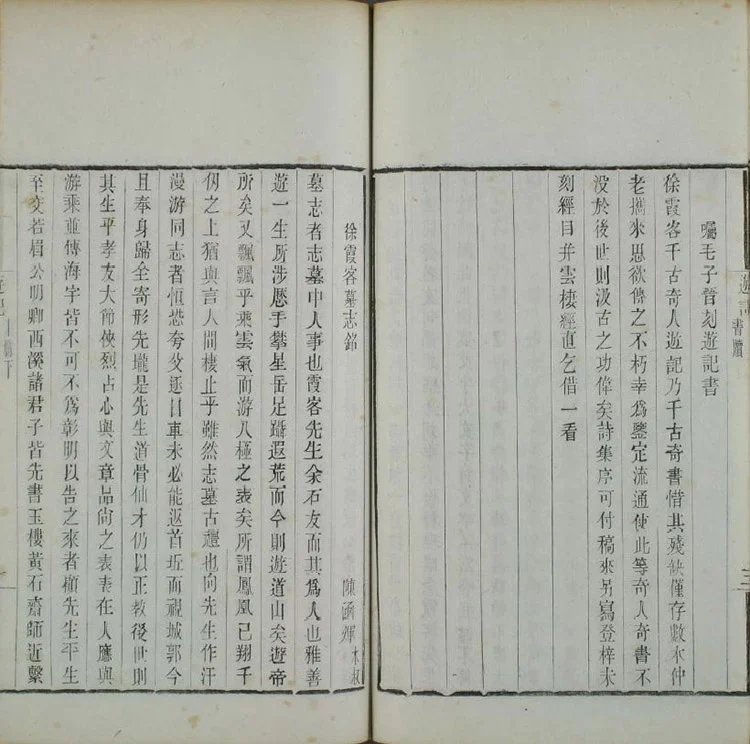 囑毛子晉刻遊記書
徐霞客千古奇人遊記乃千古奇書惜其殘缺僅存數本仲
老攜來思欲傳之不朽幸爲鑒定流通使此等奇人奇書不
没於後世則汲古之功偉矣詩集序可付稿來另寫登梓未
刻經目并雲棲經直乞借一看
遊記 書牘
三
徐霞客墓志銘
陳函煇 木叔
墓志者志墓中人事也霞客先生余石友而其爲人也雅善
遊一生所涉歷手攀星岳足躡遐荒而今則遊道山矣遊帝
所矣又飄飄乎乘雲氣而游八極之表矣所謂鳳凰已翔千
仞之上猶與言人間棲止乎雖然志墓古禮也向先生作汗
漫游同志者恒恐夸父逐日車未必能返首坵而視城郭今
且奉身歸全寄形先壠是先生道骨仙才仍以正教後世則
其生平孝友大節俠烈古心與文章品尚之表表在人應與
游乘並傳海宇皆不可不爲彰明以告之來者顧先生平生
至交若眉公明卿西溪諸君子皆先書玉樓黃石齋師近繫
遊記